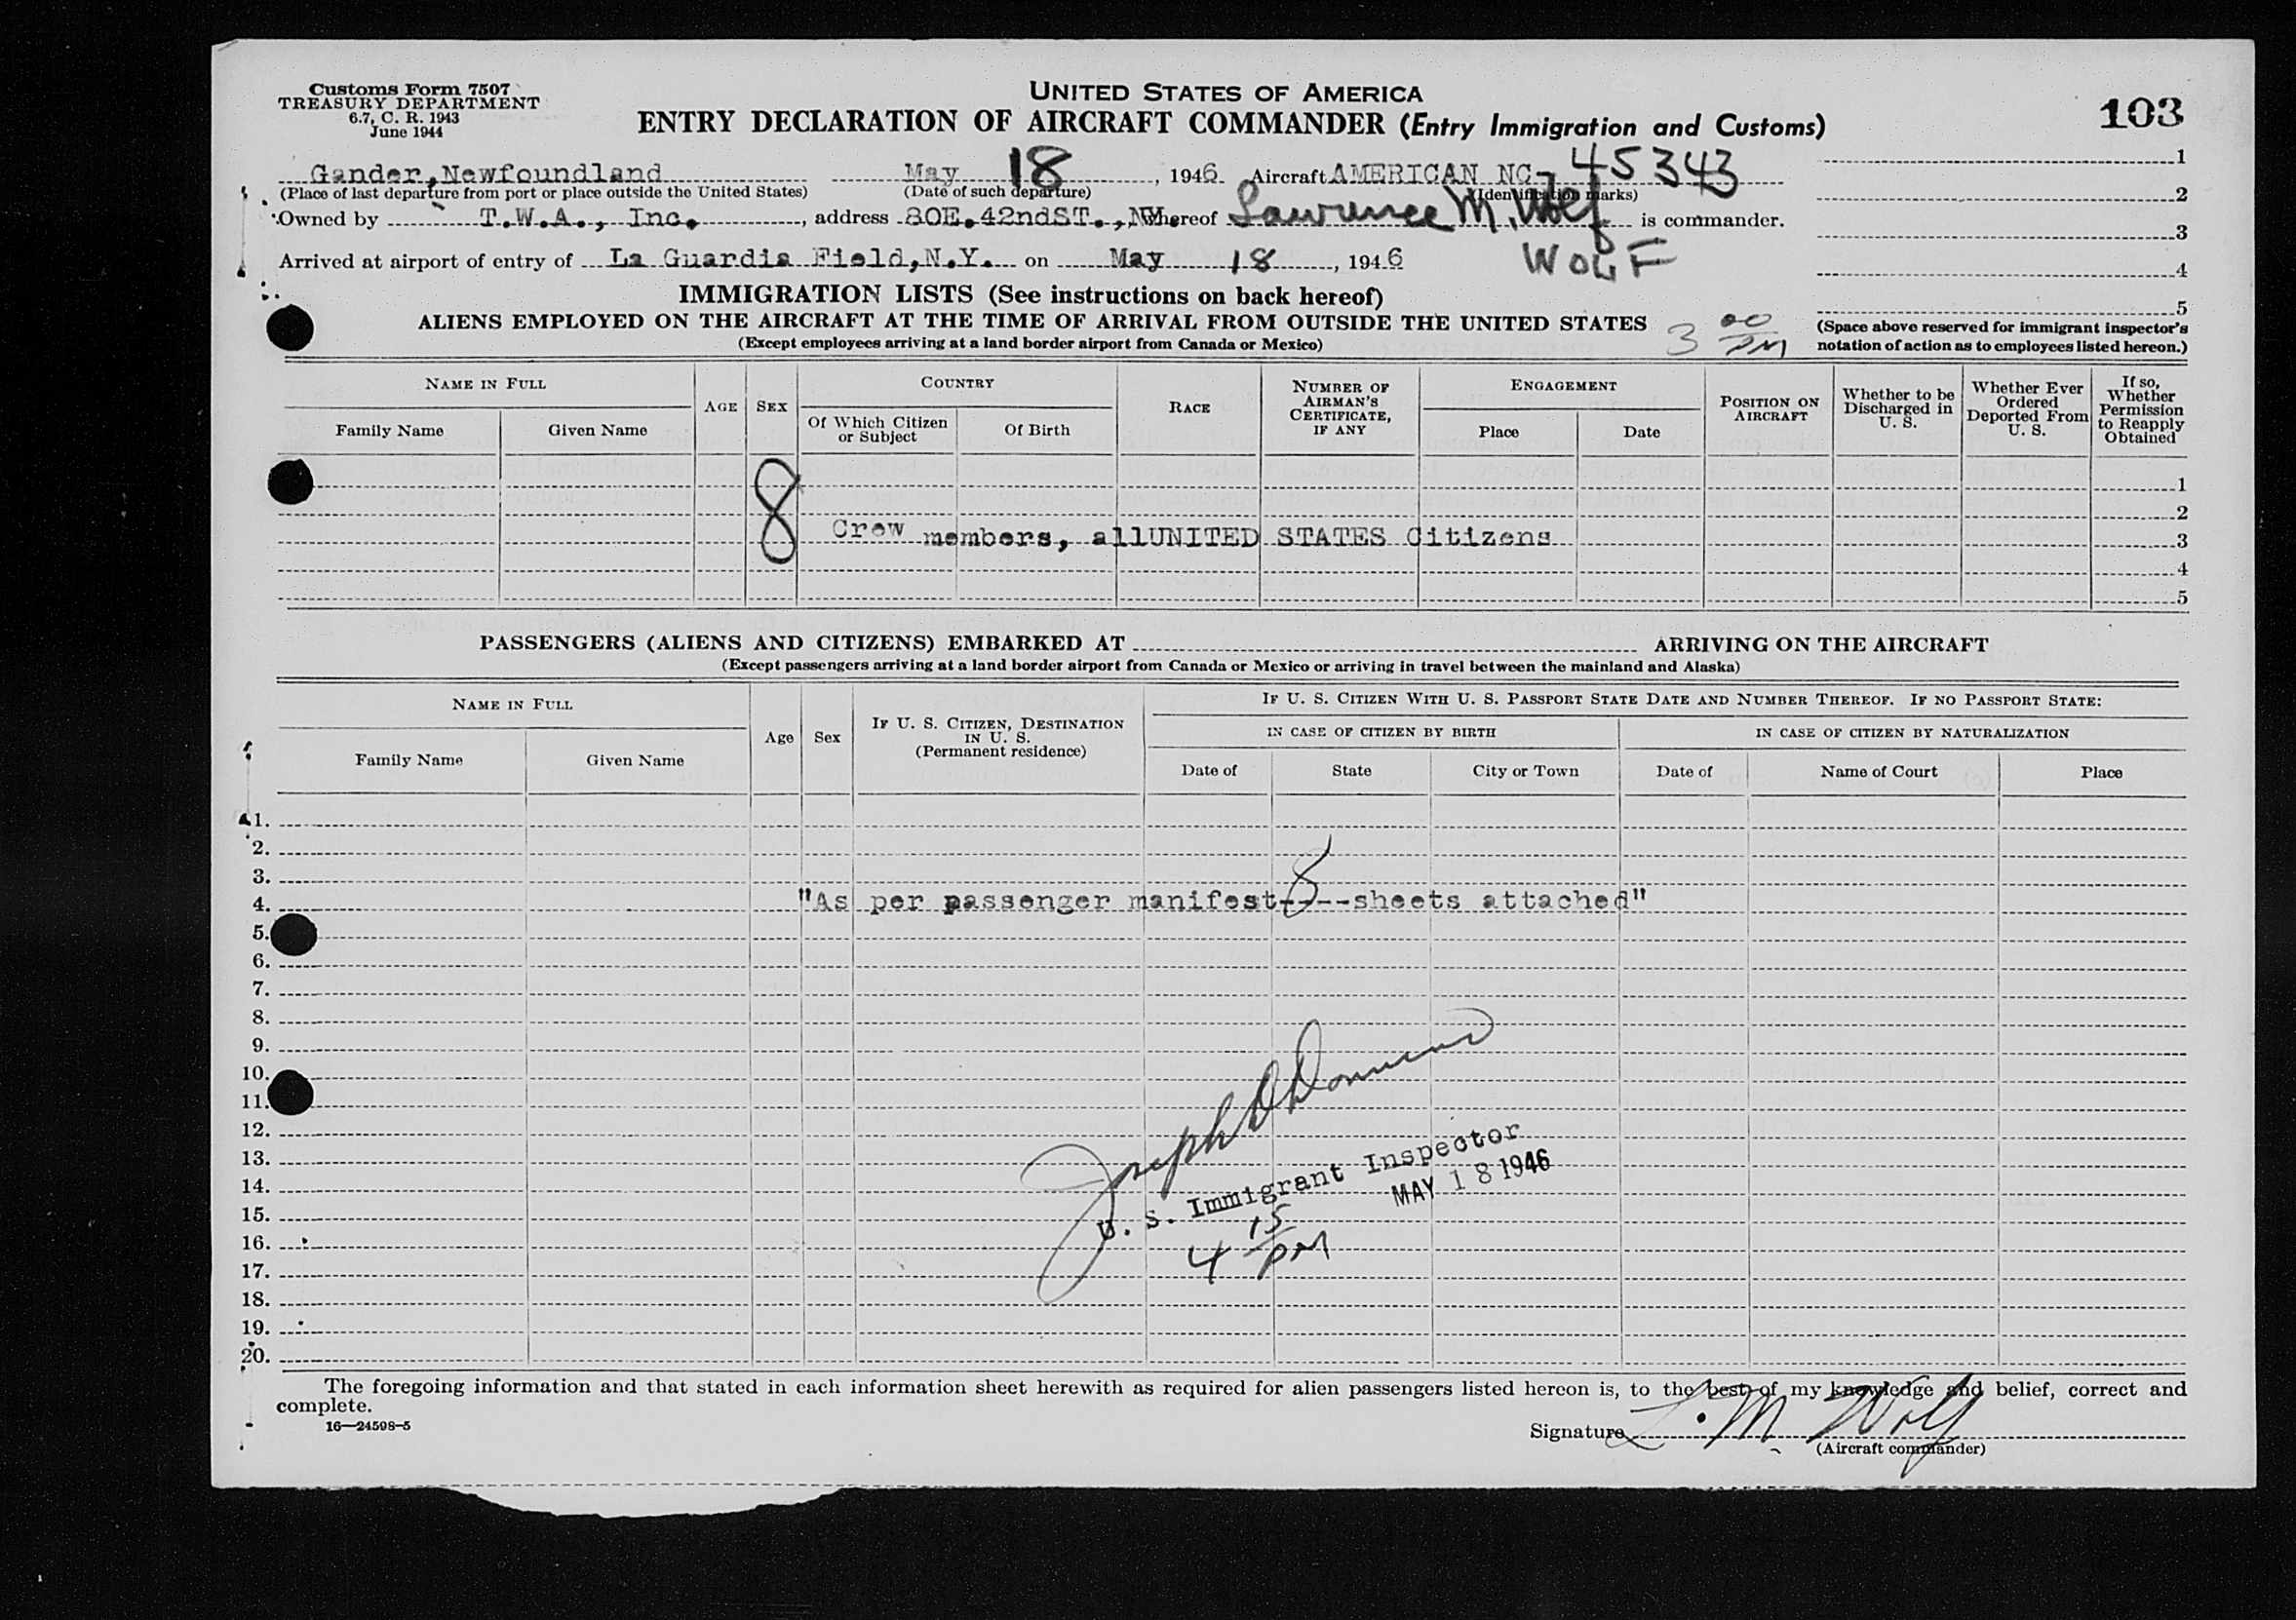 Customs Form 7507
TREASURY DEPARTMENT
6.7, C. R. 1943
June 1944
UNITED STATES OF AMERICA
ENTRY DECLARATION OF AIRCRAFT COMMANDER (Entry Immigration and Customs)
103
Gander, Newfoundland May 18, 1946 Aircraft AMERICAN NC-45343
(Place of last departure from port or place outside the United States) (Date of such departure) (Identification marks)
Owned by T.W.A., Inc., address 80E.42ndST.,NY whereof Lawrence M. Wolf is commander.
WOLF
Arrived at airport of entry of La Guardia Field, N.Y. on May 18, 1946
1
2
3
4
5
(Space above reserved for immigrant inspector's notation of action as to employees listed hereon.)
IMMIGRATION LISTS (See instructions on back hereof)
ALIENS EMPLOYED ON THE AIRCRAFT AT THE TIME OF ARRIVAL FROM OUTSIDE THE UNITED STATES
3 00 PM
(Except employees arriving at a land border airport from Canada or Mexico)
NAME IN FULL
Family Name
Given Name
AGE
SEX
COUNTRY
Of Which Citizen or Subject
Of Birth
RACE
NUMBER OF AIRMAN'S CERTIFICATE, IF ANY
ENGAGEMENT
Place
Date
POSITION ON AIRCRAFT
Whether to be Discharged in U. S.
Whether Ever Ordered Deported From U. S.
If so, Whether Permission to Reapply Obtained
1
2
8 Crew members, allUNITED STATES Citizens 3
4
5
PASSENGERS (ALIENS AND CITIZENS) EMBARKED AT ARRIVING ON THE AIRCRAFT
(Except passengers arriving at a land border airport from Canada or Mexico or arriving in travel between the mainland and Alaska)
NAME IN FULL
Family Name
Given Name
Age
Sex
IF U. S. CITIZEN, DESTINATION IN U. S. (Permanent residence)
IF U. S. CITIZEN WITH U. S. PASSPORT STATE DATE AND NUMBER THEREOF. IF NO PASSPORT STATE:
IN CASE OF CITIZEN BY BIRTH
IN CASE OF CITIZEN BY NATURALIZATION
Date of
State
City or Town
Date of
Name of Court
Place
1.
2.
3.
4. "As per passenger manifest-8--sheets attached"
5.
6.
7.
8.
9.
10.
11.
12.
13.
14.
15.
16.
17.
18.
19.
20.
Joseph
U. S. Immigrant Inspector
MAY 18 1946
4 15 PM
The foregoing information and that stated in each information sheet herewith as required for alien passengers listed hereon is, to the best of my knowledge and belief, correct and
complete.
16—24598-5
Signature L. M. Wolf
(Aircraft commander)